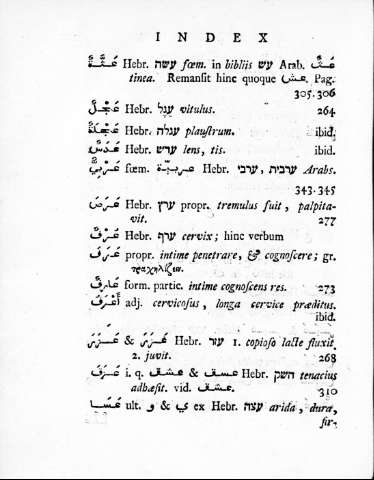 INDEX
عُثَّةٌ Hebr. עשה fœm. in bibliis עש Arab. عُثٌّ
tinea. Remansit hinc quoque عش. Pag.
305.306
عِجْلٌ Hebr. עגל vitulus. 264
عَجَلَةٌ Hebr. עגלה plaustrum. ibid.
عَدَسٌ Hebr. ערש lens, tis. ibid.
عَرَبِيٌّ fœm. عربيّة Hebr. ערבית, ערבי Arabs.
343.345
عَرَصَ Hebr. ערץ propr. tremulus fuit, palpita-
vit. 277
عُرْفٌ Hebr. ערף cervix; hinc verbum
عَرَفَ propr. intime penetrare, & cognoscere; gr.
τραχηλίζειν.
عَارِفٌ form. partic. intime cognoscens res. 273
أَعْرَفُ adj. cervicosus, longa cervice præditus.
ibid.
عَزَرَ & Hebr. עזר 1. copioso lacte fluxit.
2. juvit. 268
i. q. عسق & عشق Hebr. חשק tenacius
adhæsit. vid. عشق. 310
عَسَا ult. و & ي ex Hebr. עצה arida, dura,
fir-